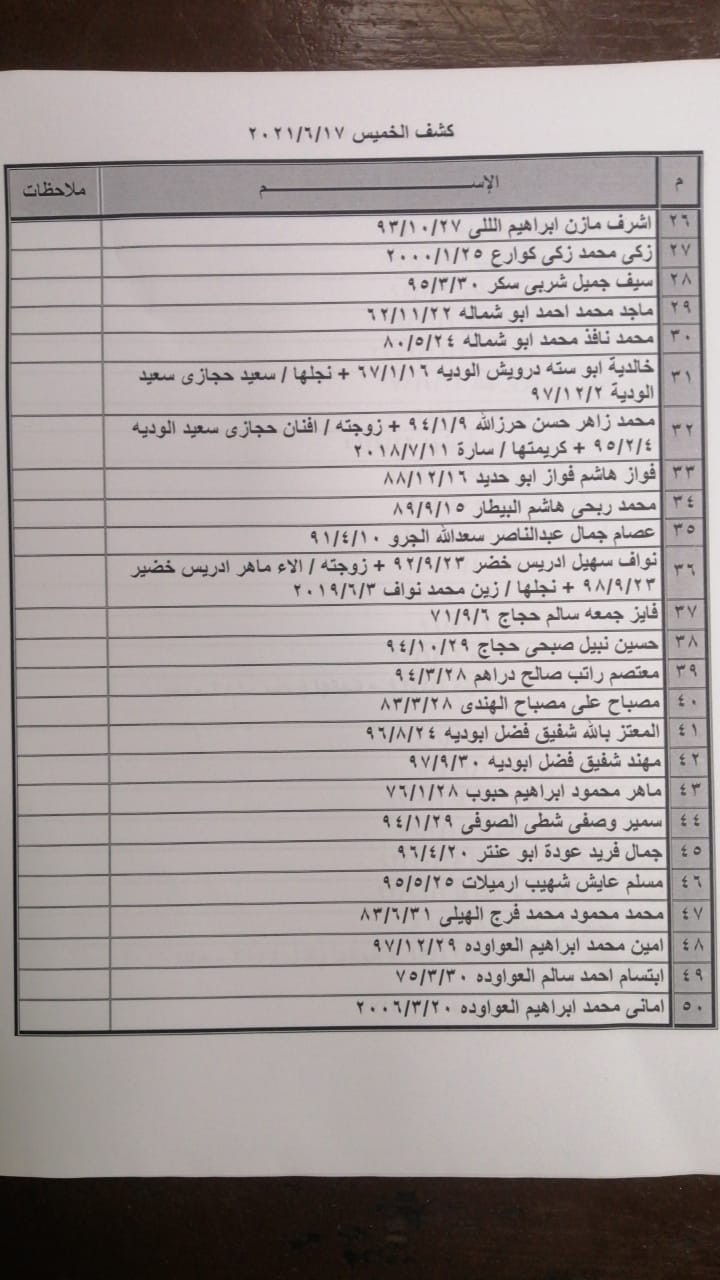 كشف الخميس ٢٠٢١/٦/١٧
م الإســـــــــم ملاحظات
٢٦ اشرف مازن ابراهيم اللى ٩٣/١٠/٢٧
٢٧ زكى محمد زكى كوارع ٢٠٠٠/١/٢٥
٢٨ سيف جميل شربى سكر ٩٥/٣/٣٠
٢٩ ماجد محمد احمد ابو شماله ٦٢/١١/٢٢
٣٠ محمد نافذ محمد ابو شماله ٨٠/٥/٢٤
٣١ خالدية ابو سته درويش الوديه ٦٧/١/١٦ + نجلها / سعيد حجازى سعيد
الودية ٩٧/١٢/٢
٣٢ محمد زاهر حسن حرزالله ٩٤/١/٩ + زوجته / افنان حجازى سعيد الوديه
٩٥/٢/٤ + كريمتها / سارة ٢٠١٨/٧/١١
٣٣ فواز هاشم فواز ابو حديد ٨٨/١٢/١٦
٣٤ محمد ربحى هاشم البيطار ٨٩/٩/١٥
٣٥ عصام جمال عبدالناصر سعدالله الجرو ٩١/٤/١٠
٣٦ نواف سهيل ادريس خضر ٩٢/٩/٢٣ + زوجته / الاء ماهر ادريس خضير
٩٨/٩/٢٣ + نجلها / زين محمد نواف ٢٠١٩/٦/٣
٣٧ فايز جمعه سالم حجاج ٧١/٩/٦
٣٨ حسين نبيل صبحى حجاج ٩٤/١٠/٢٩
٣٩ معتصم راتب صالح دراهم ٩٤/٣/٢٨
٤٠ مصباح على مصباح الهندى ٨٣/٣/٢٨
٤١ المعتز بالله شفيق فضل ابوديه ٩٦/٨/٢٤
٤٢ مهند شفيق فضل ابوديه ٩٧/٩/٣٠
٤٣ ماهر محمود ابراهيم حبوب ٧٦/١/٢٨
٤٤ سمير وصفى شطى الصوفى ٩٤/١/٢٩
٤٥ جمال فريد عودة ابو عنتر ٩٦/٤/٢٠
٤٦ مسلم عايش شهيب ارميلات ٩٥/٥/٢٥
٤٧ محمد محمود محمد فرج الهيلى ٨٣/٦/٣١
٤٨ امين محمد ابراهيم العواوده ٩٧/١٢/٢٩
٤٩ ابتسام احمد سالم العواوده ٧٥/٣/٣٠
٥٠ امانى محمد ابراهيم العواوده ٢٠٠٦/٣/٢٠